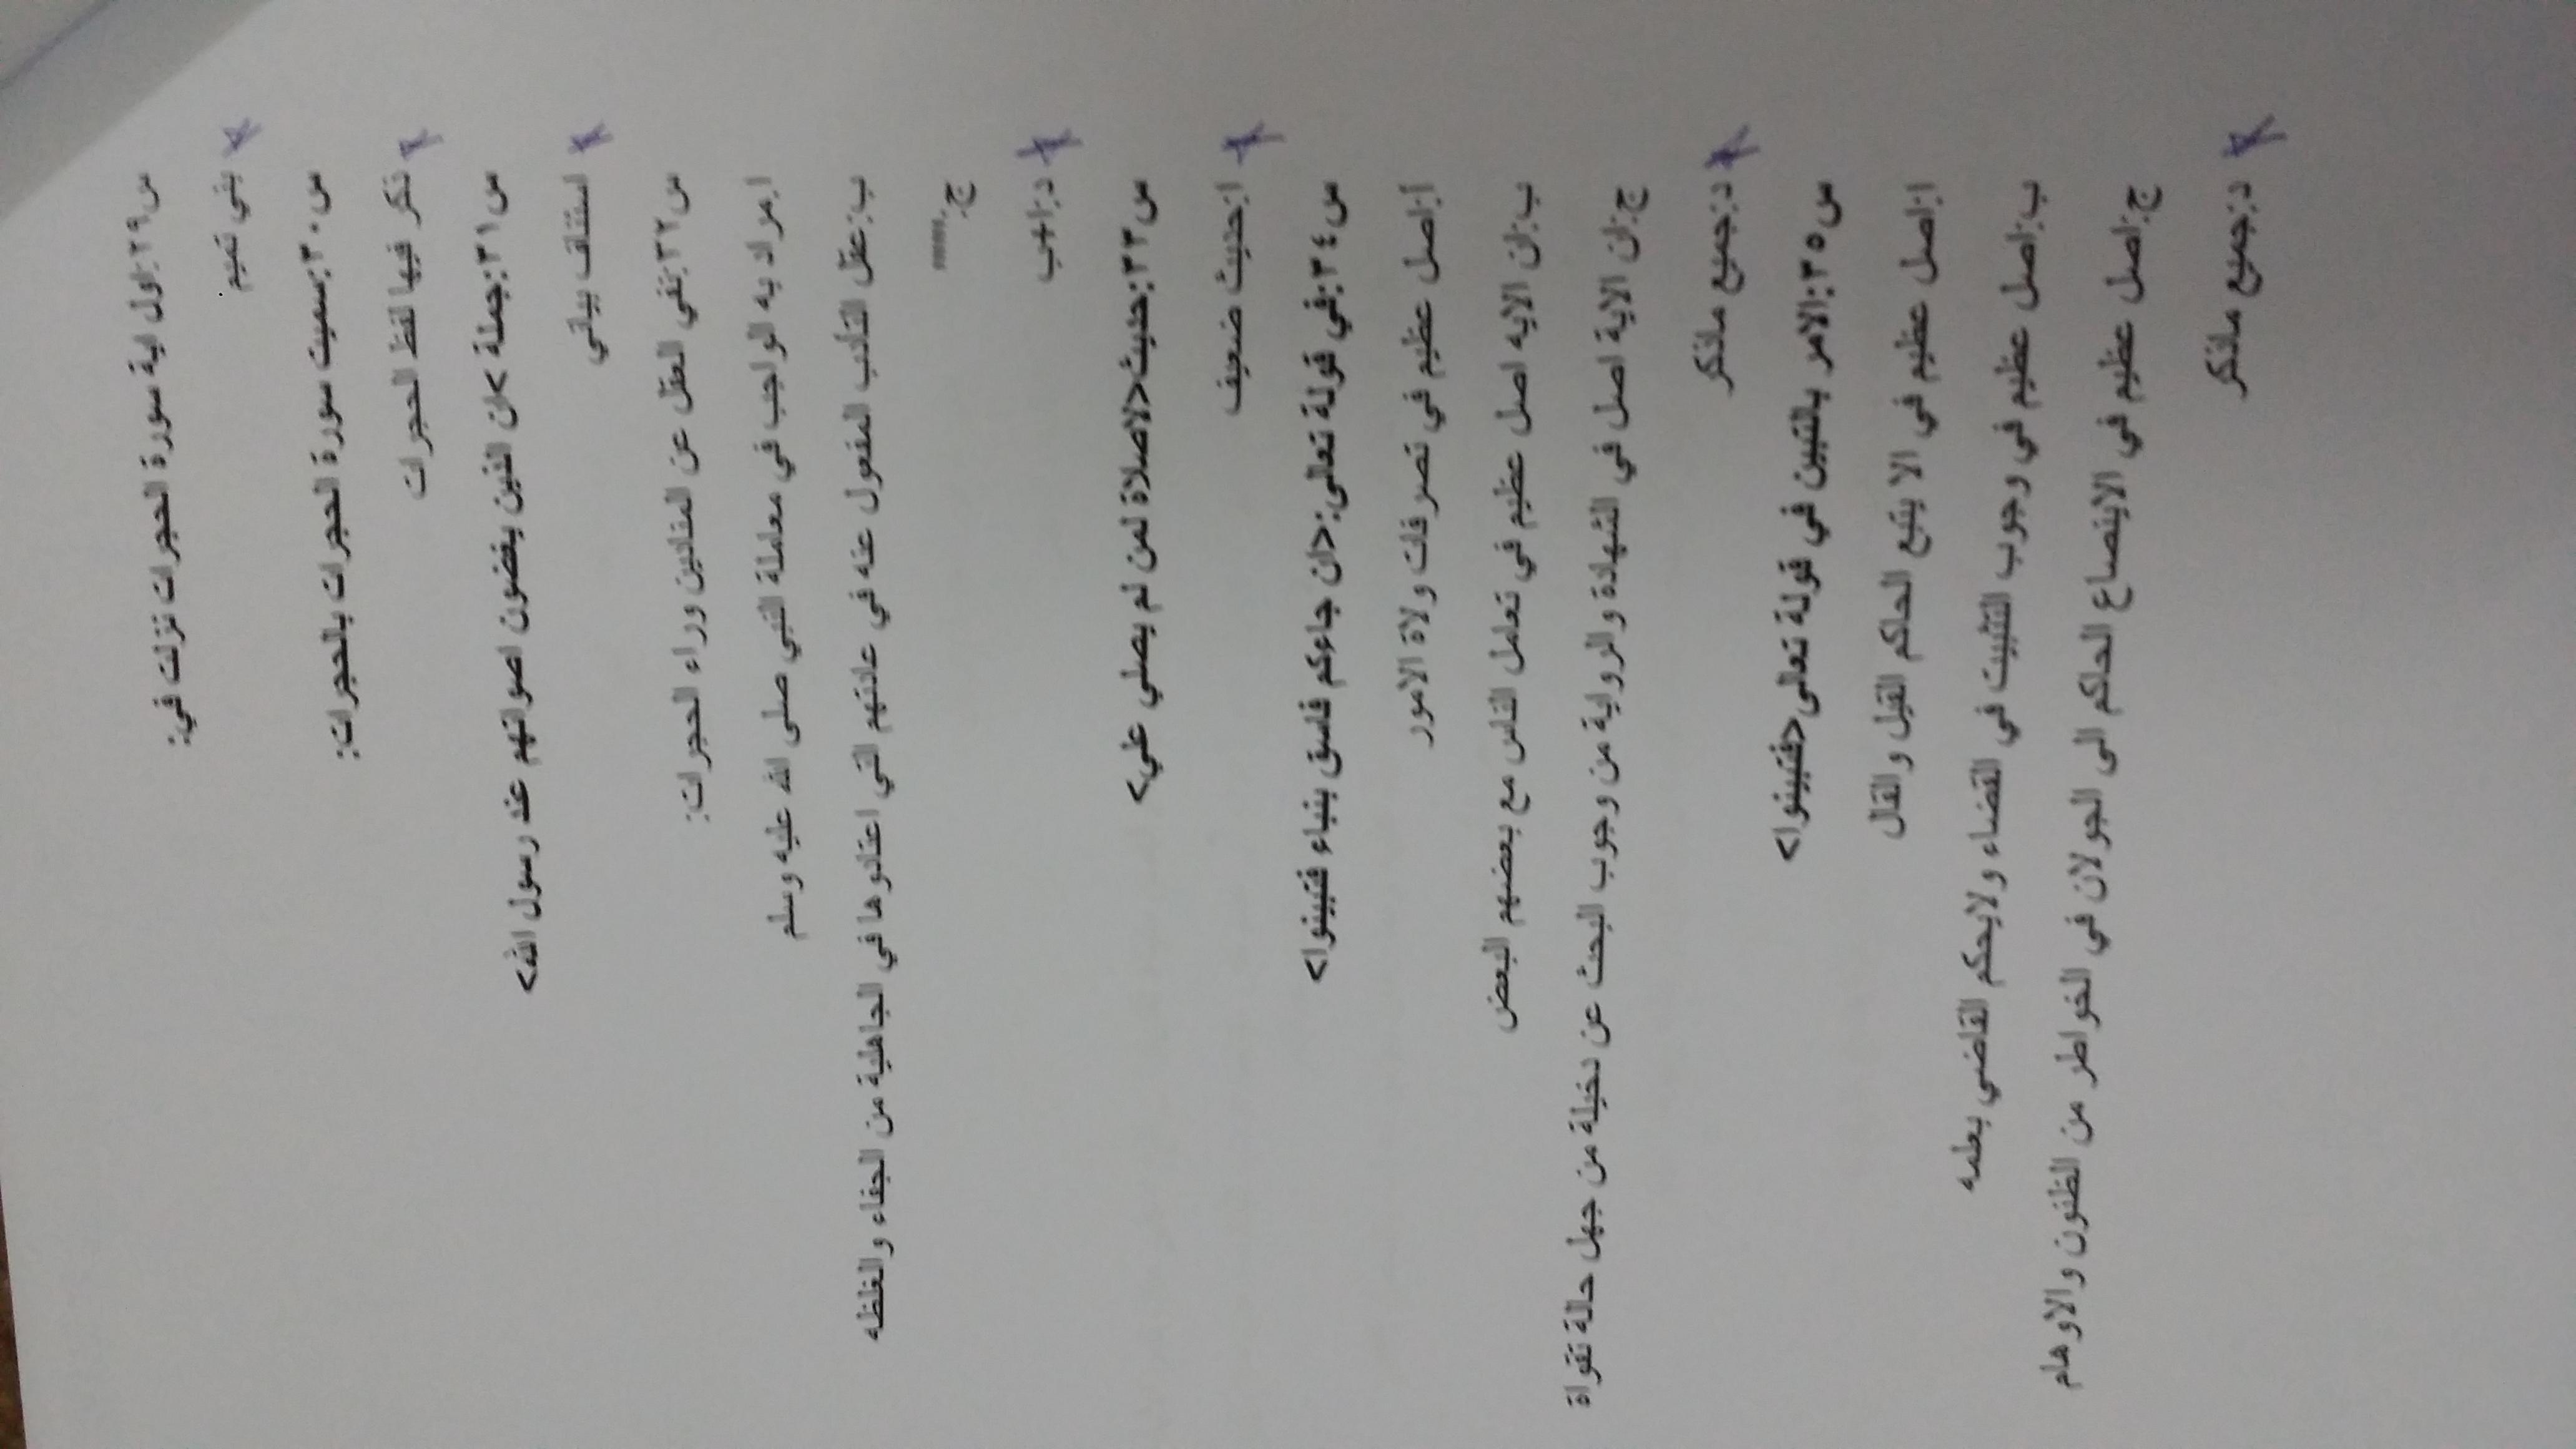 س٢٩:اول اية سورة الحجرات نزلت في:
بني تميم
س٣٠:سميت سورة الحجرات بالحجرات:
ذكر فيها لفظ الحجرات
س٣١:جملة >ان الذين يغضون اصواتهم عند رسول الله<
استئناف بياني
س٣٢:نفي العقل عن المنادين وراء الحجرات:
ا.مراد به الواجب في معاملة النبي صلى الله عليه وسلم
ب:عقل التأدب المفعول عنه في عادتهم التي اعتادوها في الجاهلية من الجفاء والغلظه
ج:""""
د:ا+ب
س٣٣:حديث<لاصلاة لمن لم يصلي علي>
ا:حديث ضعيف
س٣٤:في قولة تعالى:<ان جاءكم فاسق بنباء فتبينوا>
أ:اصل عظيم في تصرفات ولاة الامور
ب:ان الايه اصل عظيم في تعامل الناس مع بعضهم البعض
ج:ان الاية اصل في الشهادة والرواية من وجوب البحث عن دخيلة من جهل حالة تقواة
د:جميع ماذكر
س٣٥:الامر بالتبين في قولة تعالى<فتبينوا>
ا:اصل عظيم في الا يتبع الحاكم القيل والقال
ب:اصل عظيم في وجوب التثبيت في القضاء ولايحكم القاضي بعلمه
ج:اصل عظيم في الاينصاع الحاكم الى الجولان في الخواطر من الظنون والاوهام
د:جميع ماذكر